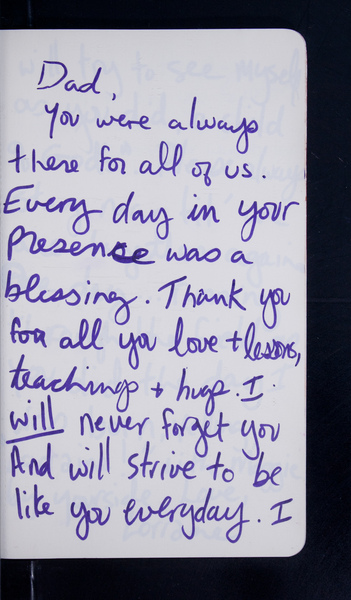 Dad,
You were always
there for all of us.
Every day in your
presence was a
blessing. Thank you
for all you love + lessons,
teachings + hugs. I
will never forget you
And will strive to be
like you everyday. I